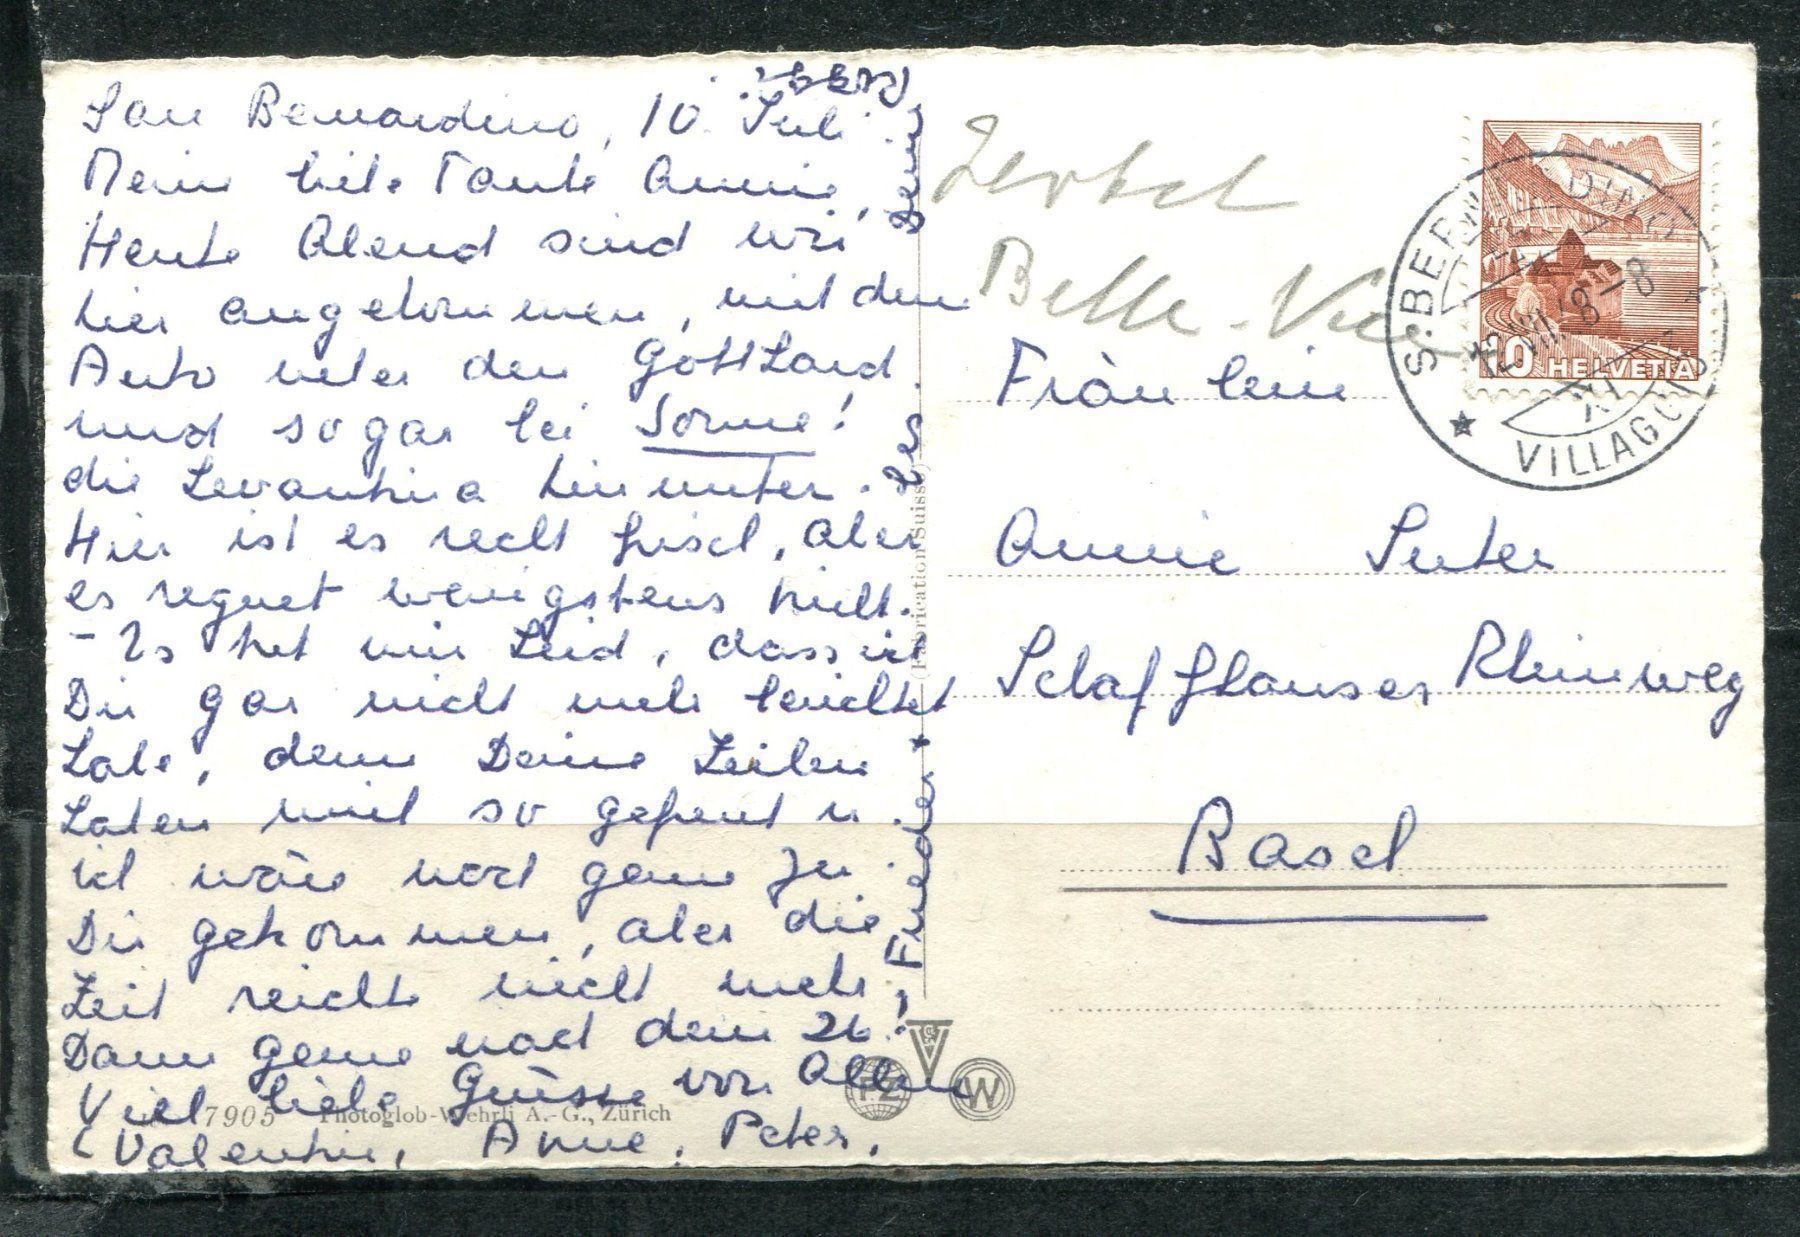 San Bernardino, 10. Juli
Mein liebe Tante Annie,
Heute Abend sind wir
hier angekommen, mit dem
Auto ueber den Gotthard
und sogar bei Sonne!
die Levantina hinunter.
Hier ist es recht frisch, aber
es regnet wenigstens nicht.
- Es tut mir Leid, dass ich
Dir gar nicht mehr berichtet
habe, denn Deine Zeilen
haben mich so gefreut u.
ich wäre noch gerne zu
Dir gekommen, aber die
Zeit reichte nicht mehr,
Dann gerne nach dem 26!
Viel liebe Grüsse von Allen
Valentin, Anne, Peter,
Frieder +
Zertsch
Belle-Vue
Fräulein
Annie Suter
Schaffhauser Rheinweg
Basel
S. BERNARDINO
VILLAGGIO
10 HELVETIA
(Fabrication Suisse)
7905 Photoglob-Wehrli A.-G., Zürich
PZ
W